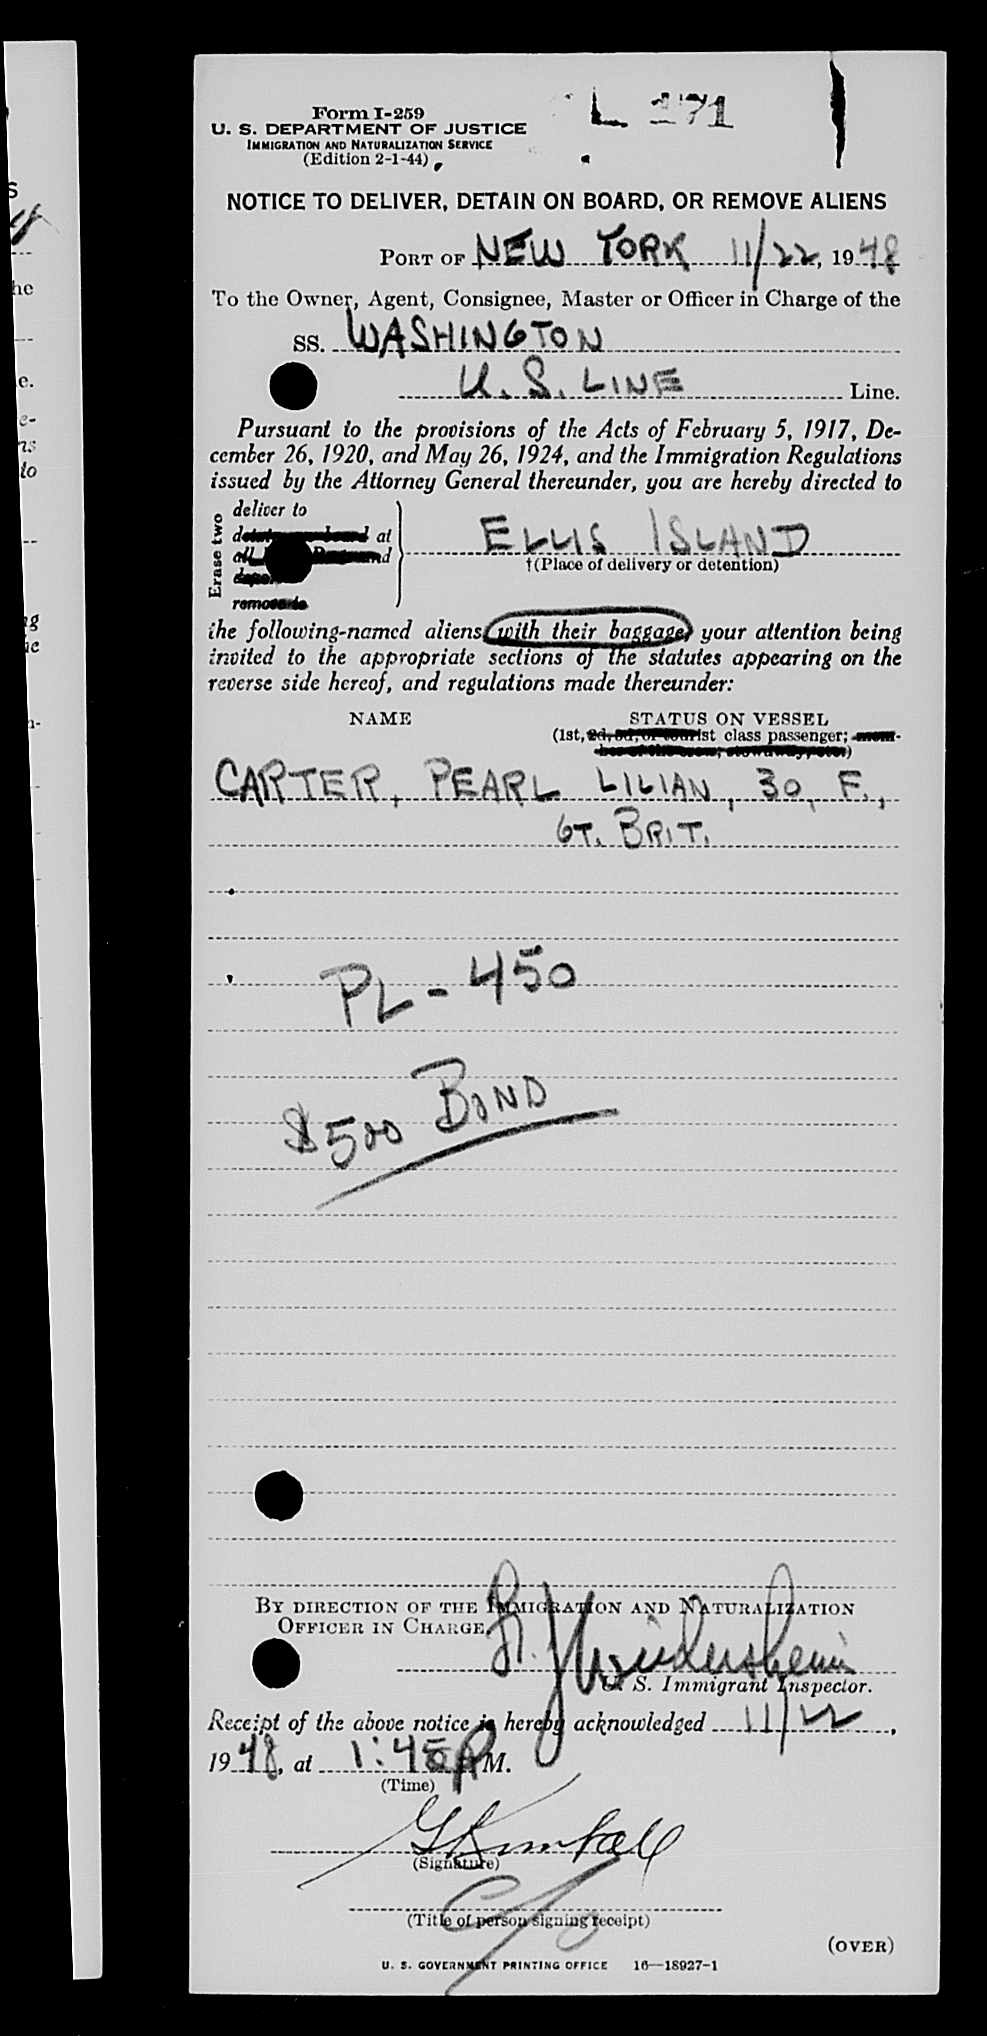 Form I-259
U. S. DEPARTMENT OF JUSTICE
IMMIGRATION AND NATURALIZATION SERVICE
(Edition 2-1-44)
L 171
NOTICE TO DELIVER, DETAIN ON BOARD, OR REMOVE ALIENS
PORT OF NEW YORK 11/22, 1948
To the Owner, Agent, Consignee, Master or Officer in Charge of the
SS. WASHINGTON
U. S. LINE Line.
Pursuant to the provisions of the Acts of February 5, 1917, De-
cember 26, 1920, and May 26, 1924, and the Immigration Regulations
issued by the Attorney General thereunder, you are hereby directed to
Erase two
deliver to
at
ELLIS ISLAND
†(Place of delivery or detention)
remove to
the following-named aliens with their baggage, your attention being
invited to the appropriate sections of the statutes appearing on the
reverse side hereof, and regulations made thereunder:
NAME STATUS ON VESSEL
(1st, 2d, 3d, or tourist class passenger; mem-
ber of the crew; stowaway, etc.)
CARTER, PEARL LILIAN, 30, F.,
GT. BRIT.
PL - 450
$500 BOND
BY DIRECTION OF THE IMMIGRATION AND NATURALIZATION
OFFICER IN CHARGE,
U. S. Immigrant Inspector.
Receipt of the above notice is hereby acknowledged 11/22,
1948, at 1:45 PM.
(Time)
(Signature)
(Title of person signing receipt)
(OVER)
U. S. GOVERNMENT PRINTING OFFICE 16—18927-1